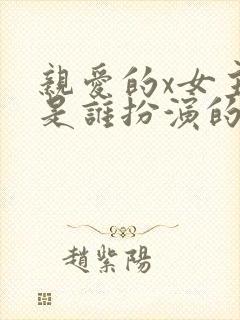 親愛的x女主
是誰扮演的
趙紫陽